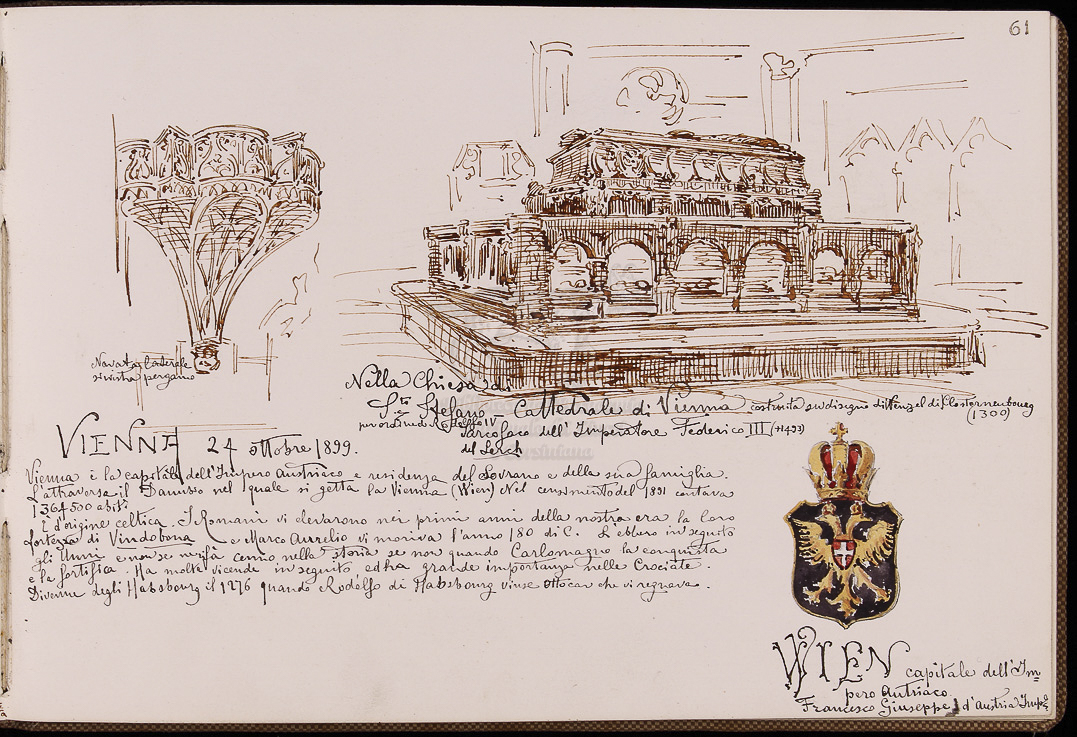 61
Navata laterale
si vista pergamo
Nella Chiesa di
S.te Stefano - Cattedrale di Vienna costruita su disegno di Wenzel di Klosterneubourg
(1300)
per ordine di Rodolfo IV
Sarcofaco dell'Imperatore Federico III (+1493)
del Lerch
VIENNA 24 ottobre 1899.
Vienna è la capitale dell'Impero Austriaco e residenza del Sovrano e della sua famiglia.
L'attraversa il Danubio nel quale si getta la Vienna (Wien) Nel censimento del 1891 contava
1364500 abiti
È d'origine celtica. I Romani vi elevarono nei primi anni della nostra era la loro
fortezza di Vindobona e Marco Aurelio vi moriva l'anno 180 di C. Si ebbero in seguito
gli Unni e non se ne fà cenno nella storia se non quando Carlomagno la conquista
e la fortifica. Ha molte vicende in seguito ed ha grande importanza nelle Crociate.
Divenne degli Habsbourg il 1276 quando Rodolfo di Habsbourg vinse Ottocar che vi regnava.
WIEN capitale dell'Im
pero Austriaco
Francesco Giuseppe I d'Austria Imp.e